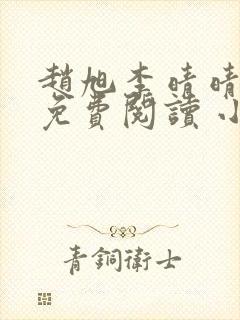 趙旭李晴晴
免費閱讀小
青銅衛士